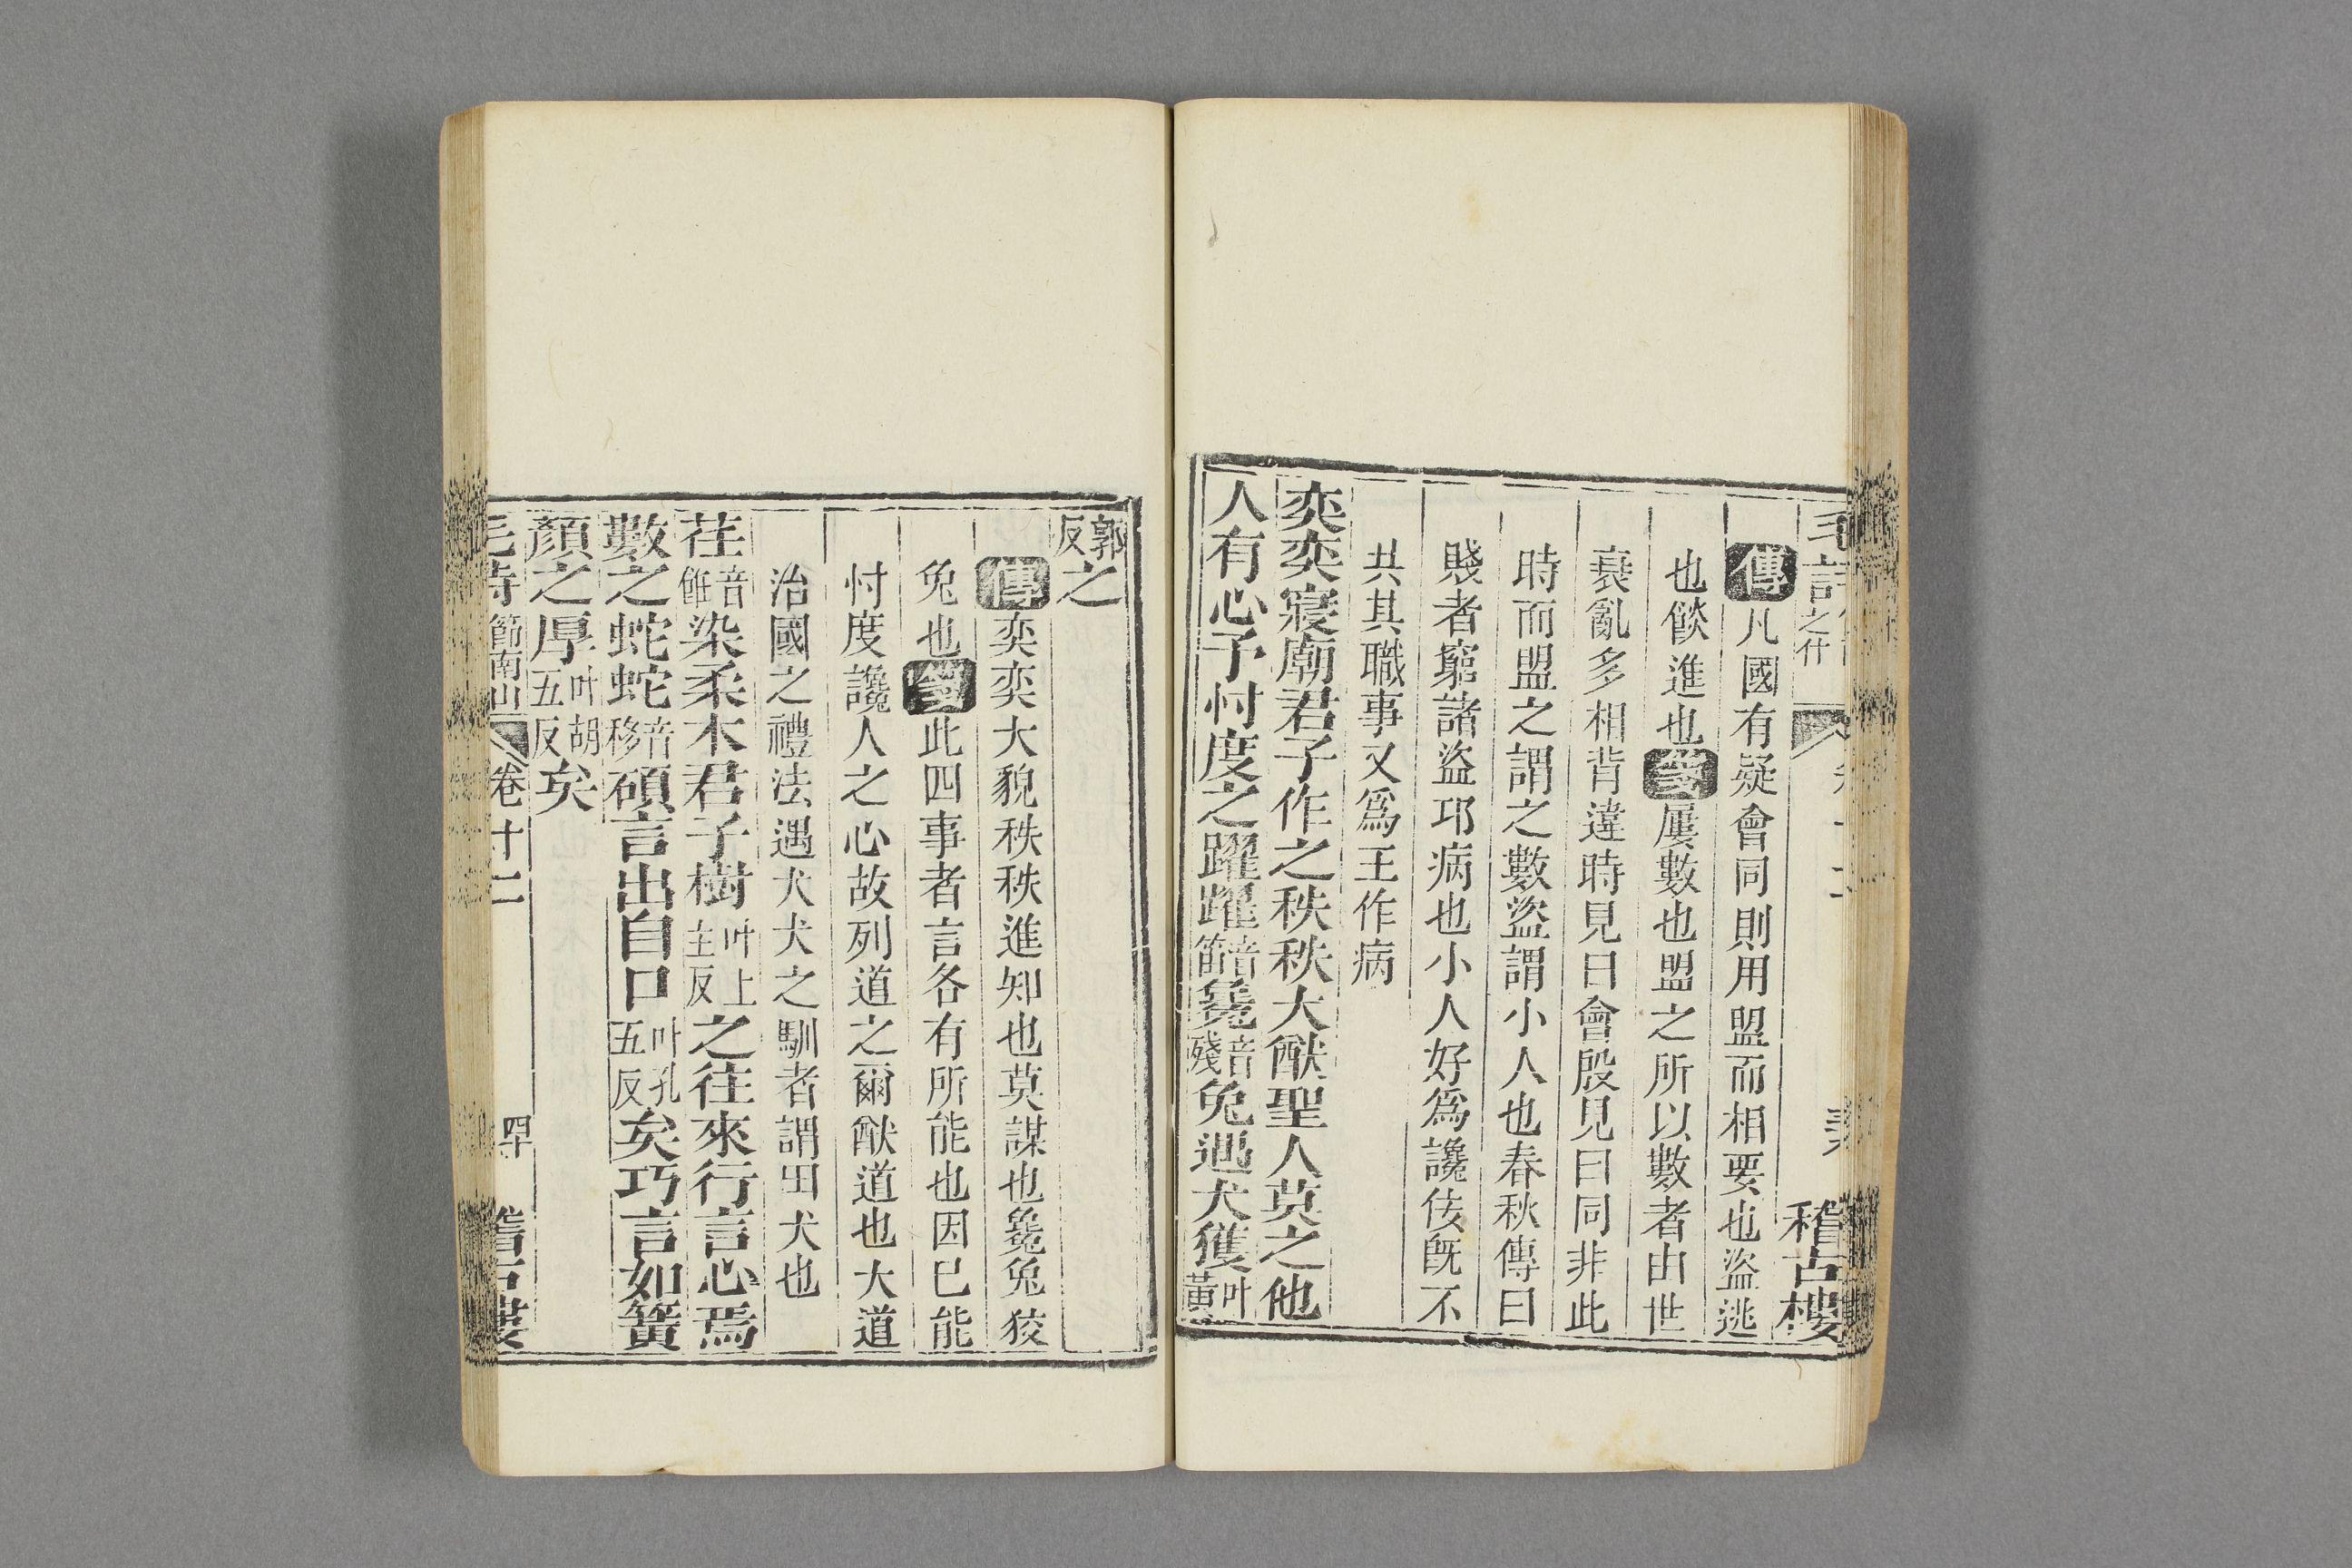 毛詩 之什 稽古樓
傳凡國有疑會同則用盟而相要也盜逃
也餤進也箋屢數也盟之所以數者由世
衰亂多相背違時見曰會殷見曰同非此
時而盟之謂之數盜謂小人也春秋傳曰
賤者窮諸盜邛病也小人好爲讒佞旣不
共其職事又爲王作病
奕奕寢廟君子作之秩秩大猷聖人莫之他
人有心予忖度之躍躍音笛毚音殘兔遇犬獲叶黃
郭反之
傳奕奕大貌秩秩進知也莫謀也毚兔狡
兔也箋此四事者言各有所能也因已能
忖度讒人之心故列道之爾猷道也大道
治國之禮法遇犬犬之馴者謂田犬也
荏音飪染柔木君子樹叶上主反之往來行言心焉
數之蛇蛇音移碩言出自口叶孔五反矣巧言如簧
顏之厚叶胡五反矣
毛詩 節南山 卷十二 四十 稽古樓